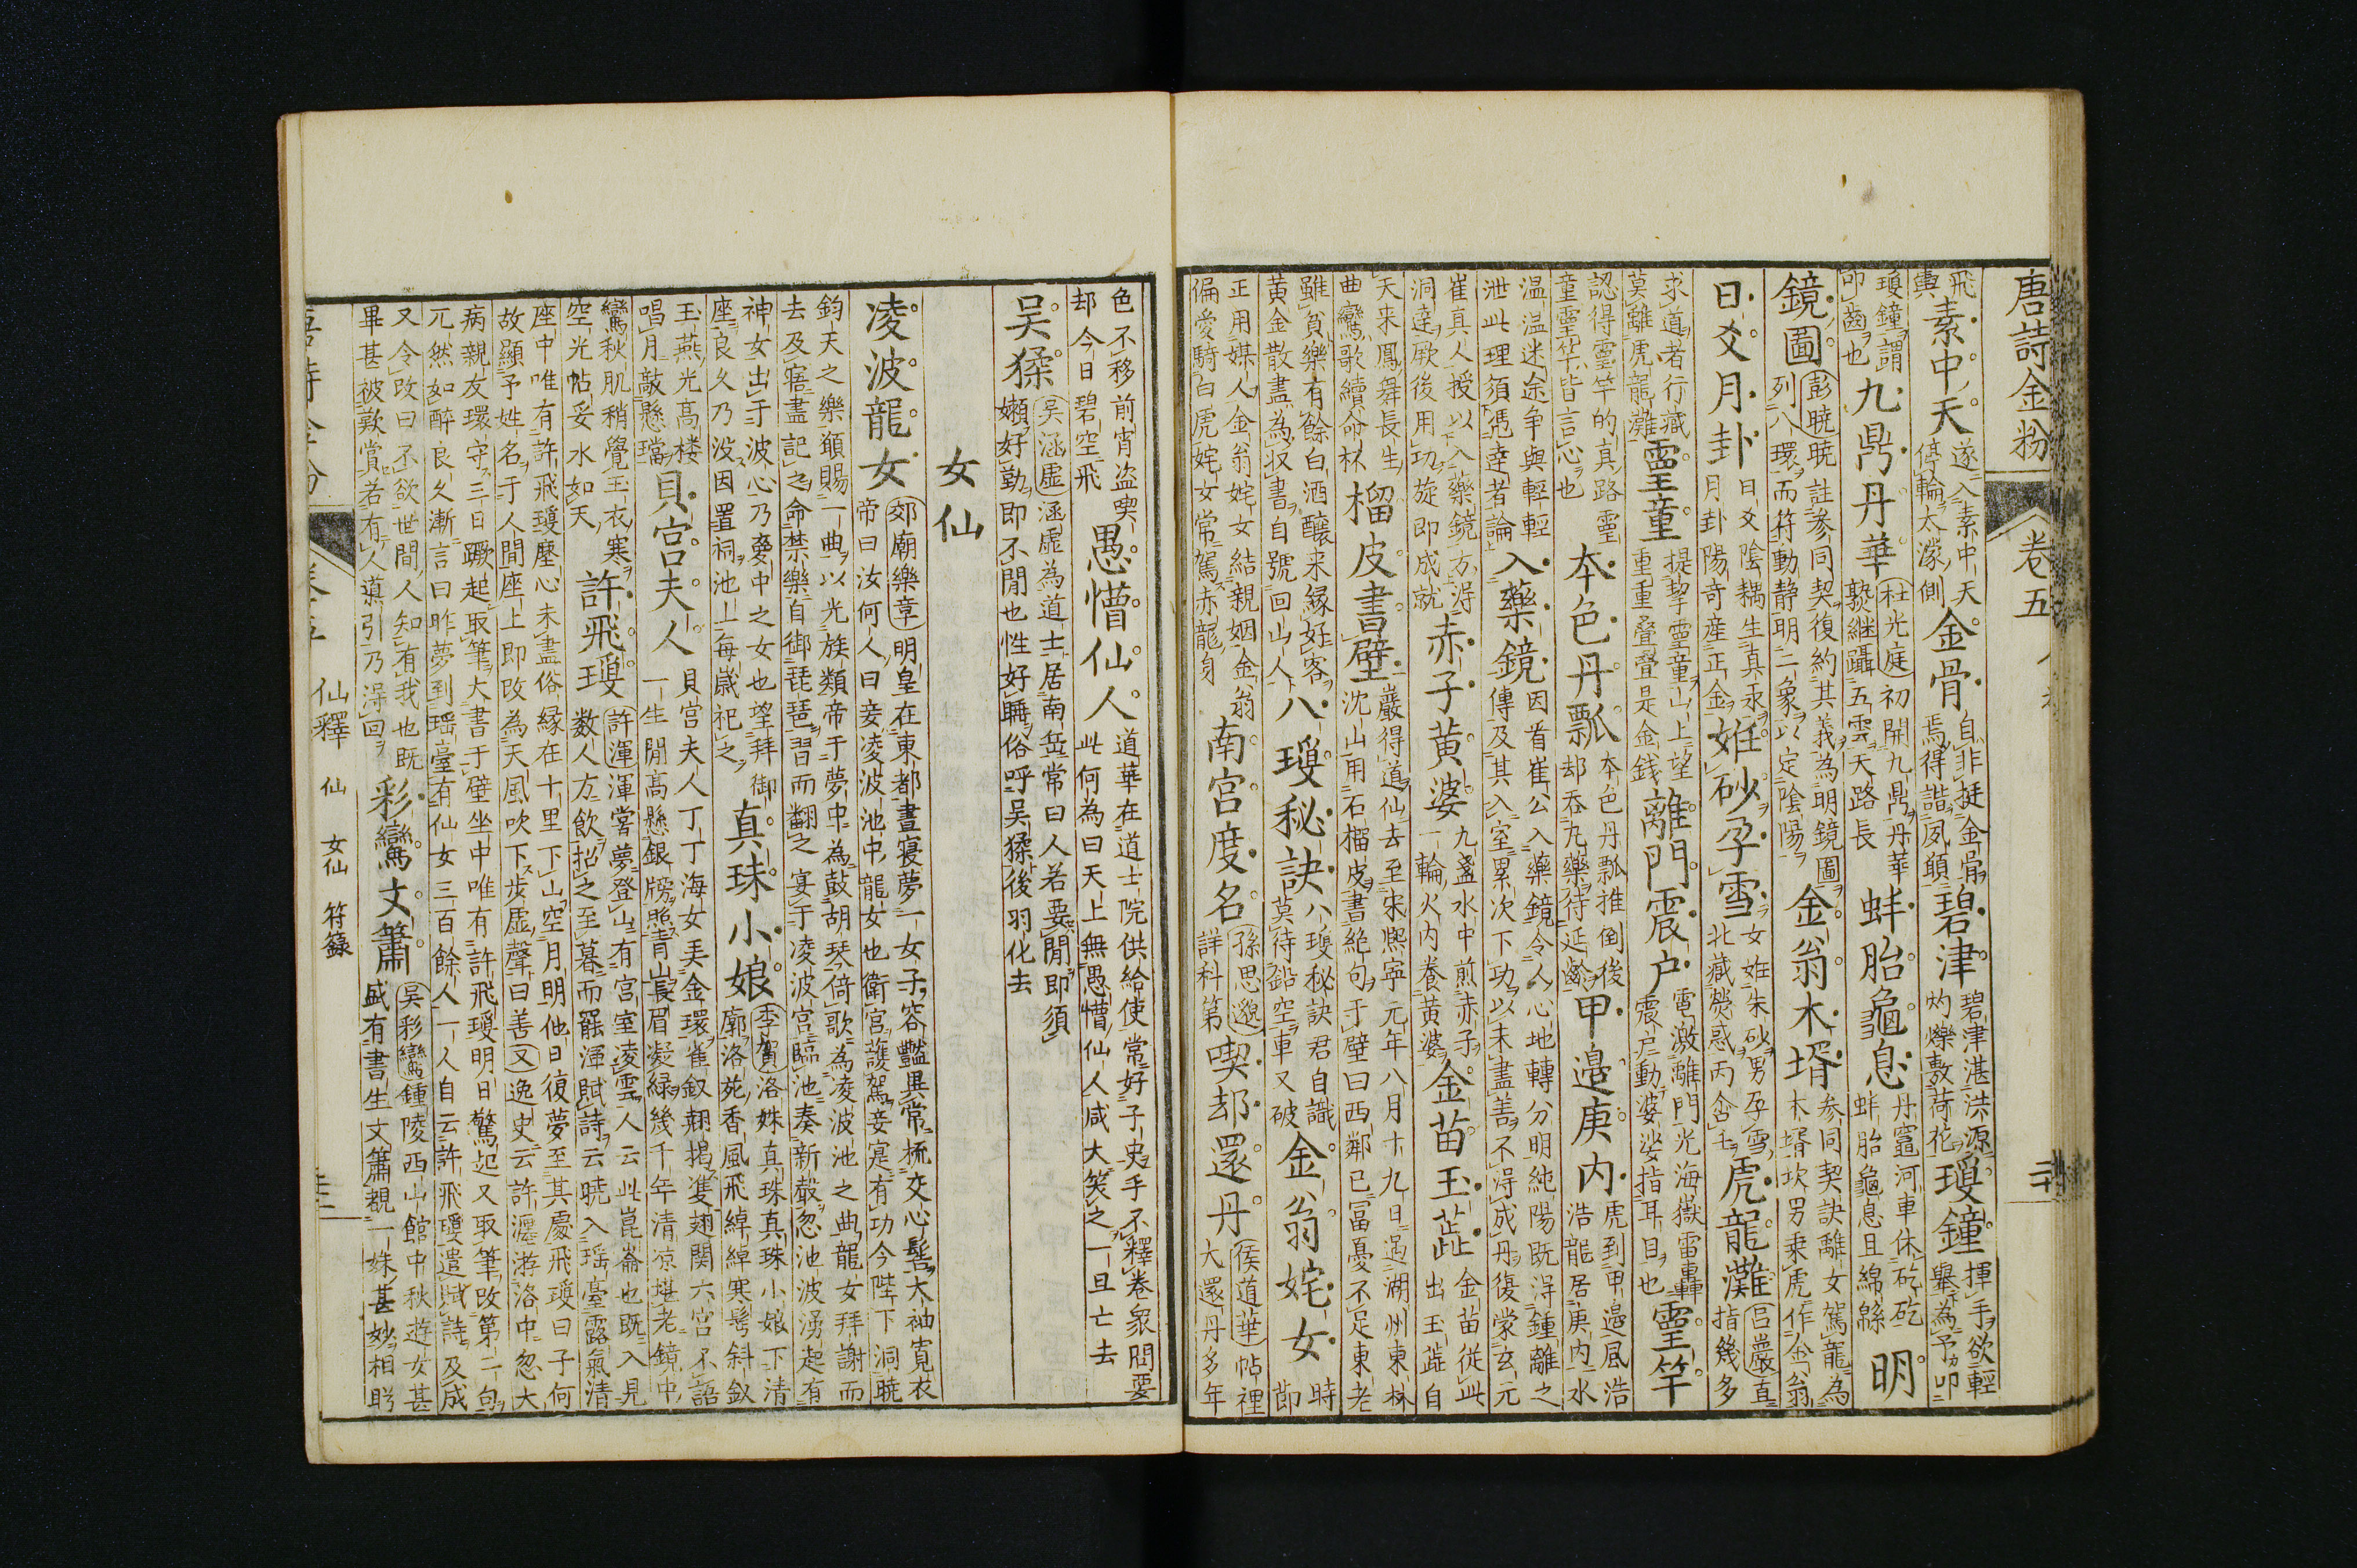 唐詩金粉 卷五
飛素中天 遂入素中天停輪太濛側 金骨 自非挺金骨焉得諧夙願 碧津 碧津湛洪源灼爍敷荷花 瓊鐘 揮手欲輕舉為予叩
瓊鐘謂叩齒也 九鼎丹華 杜光庭 初開九鼎丹華熟継躡五雲天路長 蚌胎龜息 丹竈河車休矻矻蚌胎龜息且綿綿 明
鏡圖 彭曉 曉註參同契復約其義為明鏡圖列八環而符動静明二象以定陰陽 金翁木壻 參同契訣離女駕龍為木壻坎男乘虎作金翁
日爻月卦 日爻陰耦生真汞月卦陽奇産正金 姙砂孕雪 女姙朱砂男孕雪北藏熒惑丙含壬 虎龍灘 呂巖 直指幾多
求道者行藏莫離虎龍灘 靈童 提挈靈童山上望重重疊疊是金錢 離門震户 電激離門光海嶽雷轟震户動婆娑指耳目也 靈竿
認得靈竿的真路靈童靈竿皆言心也 本色丹瓢 本色丹瓢推倒後却吞九藥待延齡 甲邉庚内 虎到甲邉風浩浩龍居庚内水
温温迷途争與輕輕泄此理須憑逹者論 入藥鏡 因首崔公入藥鏡令人心地轉分明純陽既得鍾離之傳及其入室累次下功以未盡善不得成丹復蒙玄元
崔真人授以入藥鏡方得洞達厥後用功旋即成就 赤子黄婆 九盞水中煎赤子一輪火内養黄婆 金苗玉蕋 金苗従此出玉蕋自
天来鳳舞長生曲鸞歌續命杯 榴皮書壁 巖得道仙去至宋熈寧元年八月十九日過湖州東林沈山用石榴皮書絶句于壁曰西鄰已富憂不足東老
雖貧樂有餘白酒釀来縁好客黄金散盡為収書自號回山人 八瓊秘訣 八瓊秘訣君自識莫待鉛空車又破 金翁姹女 時節
正用媒人金翁姹女結親姻金翁偏愛騎白虎姹女常駕赤龍身 南宫度名 孫思邈 詳科第 喫却還丹 侯道華 帖裡大還丹多年
色不移前宵盗喫却今日碧空飛 愚懵仙人 道華在道士院供給使常好子史手不釋卷衆問要此何為曰天上無愚懵仙人咸大笑之一旦亡去
吴猱 吴涵虚 涵虚為道士居南岳常曰人若要閒即須嬾好勤即不閒也性好睡俗呼吴猱後羽化去
女仙
凌波龍女 郊廟樂章 明皇在東都晝寝夢一女子容豔異常梳交心髻大袖寛衣帝曰汝何人曰妾凌波池中龍女也衛宫護駕妾寔有功今陛下洞曉
鈞天之樂願賜一曲以光族類帝于夢中為鼓胡琴倚歌為凌波池之曲龍女拜謝而去及寤盡記之命禁樂自御琵琶習而翻之宴于凌波宫臨池奏新聲忽池波湧起有
神女出于波心乃夢中之女也望拜御座良久乃没因置祠池上每歲祀之 真珠小娘 李賀 洛姝真珠真珠小娘下清廓洛苑香風飛綽綽寒鬢斜釵
玉燕光高楼唱月敲懸璫 貝宫夫人 貝宫夫人丁丁海女弄金環雀釵翹揭䨇翅関六宫不語一生閒高懸銀牓照青山長眉凝緑幾千年清凉堪老鏡中
鸞秋肌稍覺玉衣寒空光帖妥水如天 許飛瓊 許渾 渾嘗夢登山有宫室凌雲人云此崑崙也既入見数人方飲招之至暮而罷渾賦詩云曉入瑶臺露氣清
座中唯有許飛瓊塵心未盡俗縁在十里下山空月明他日復夢至其處飛瓊曰子何故顯予姓名于人間座上即改為天風吹下步虚聲曰善 又 逸史云許瀍游洛中忽大
病親友環守三日蹶起取筆大書于壁坐中唯有許飛瓊明日驚起又取筆改第二句兀然如醉良久漸言曰昨夢到瑶臺有仙女三百餘人一人自云許飛瓊遣賦詩及成
又令改曰不欲世間人知有我也既畢甚被歎賞若有人導引乃得回 彩鸞文簫 吴彩鸞 鍾陵西山館中秋遊女甚盛有書生文簫覩一姝甚妙相盻
仙釋 仙 女仙 符籙